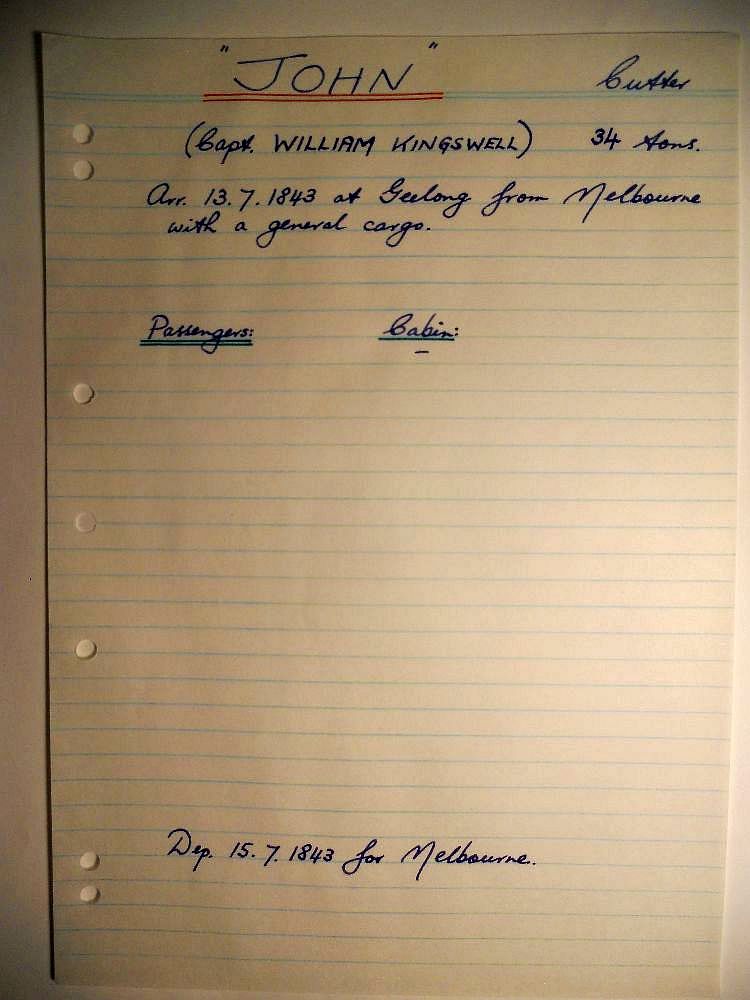 "JOHN" Cutter
(Capt. WILLIAM KINGSWELL) 34 tons.
Arr. 13.7.1843 at Geelong from Melbourne
with a general cargo.
Passengers: Cabin:
–
Dep. 15.7.1843 for Melbourne.